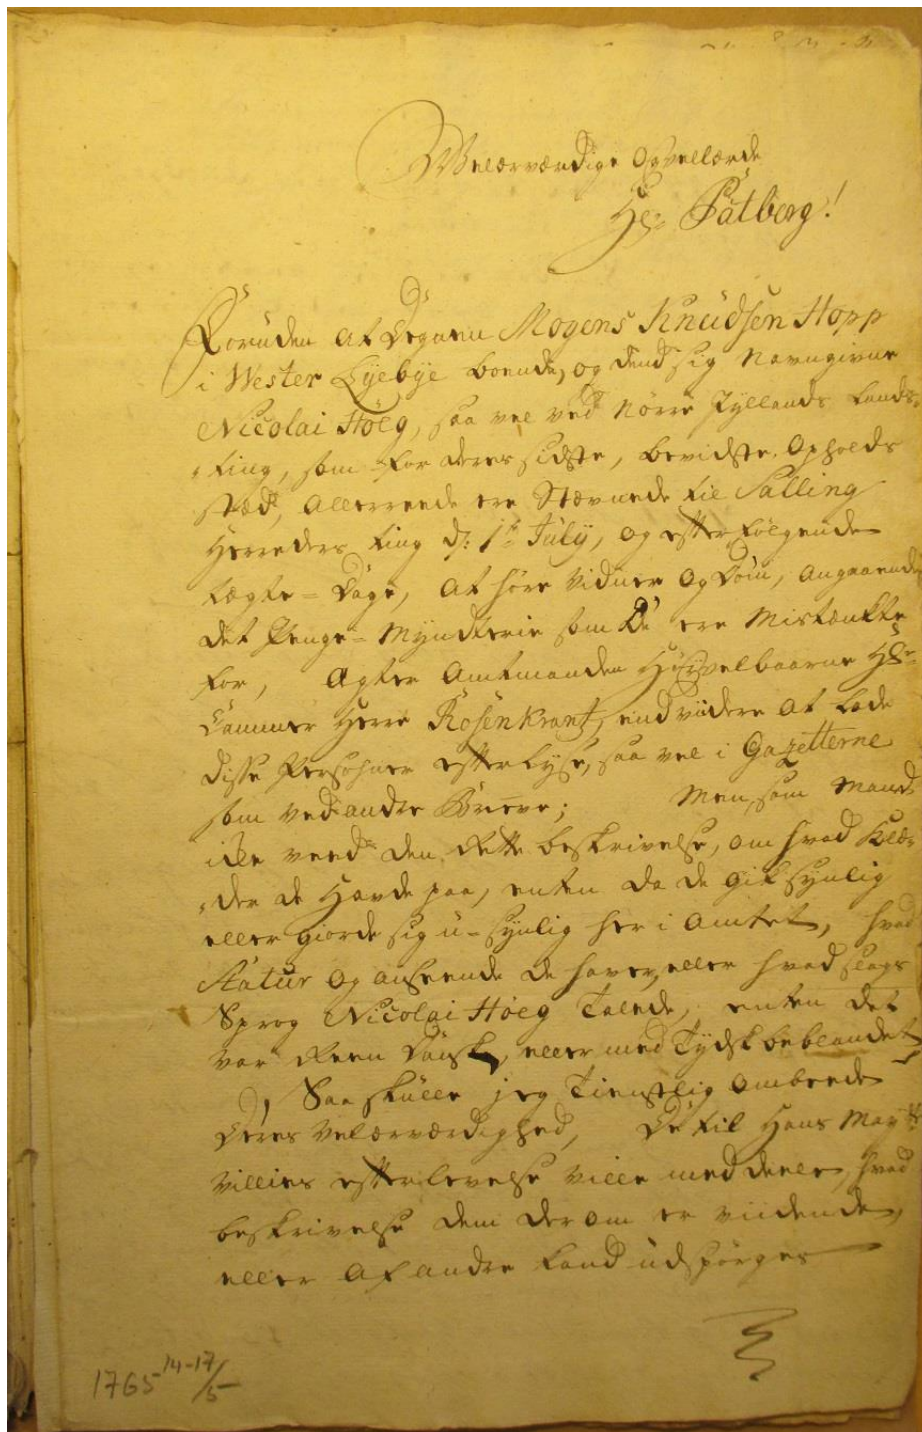 Velærværdige Og Vellærde
Hr: Pátberg!
Foruden at Degnen Mogens Knudsen Hopp
i Wester Lyebye boende, og dend sig Navngivne
Nicolai Höeg, saa vel ved Nörre Jyllands Lands-
-ting, som for deres sidste, bevidste Opholds
stæd, allerreede ere Stævnede til Salling
Herreders ting d: 1te July, og efterfölgende
tægte-Dage, at höre Vidner og Dom, angaaende
det Penge-Mynderie som De ere Mistænkte
for, Agter Amtmanden Höyvelbaarne Hr
Cammer Herre Rosenkrantz, end viidere at lade
disse Persohner efterlyse, saa vel i Gazetterne
som ved andre Breve; Men, som Mand
icke veed den Rette beskrivelse, om hvad Klæ-
-der de Havde paa, enten da de gik synlig
eller giorde sig u-synlig her i Amtet, hvad
Statur og anseende de haver, eller hvad slags
Sprog Nicolai Höeg Talede, enten det
var Reen Dansk, eller med Tydsk beblandet
Saa skulle jeg Tienstlig ombeede
Deres Velærværdighed, De til Hans Mayts:
Villies efterlevelse ville meddeele, hvad
beskrivelse dem derom er viidende,
eller af andre kand udspörges
1765 14-17/5